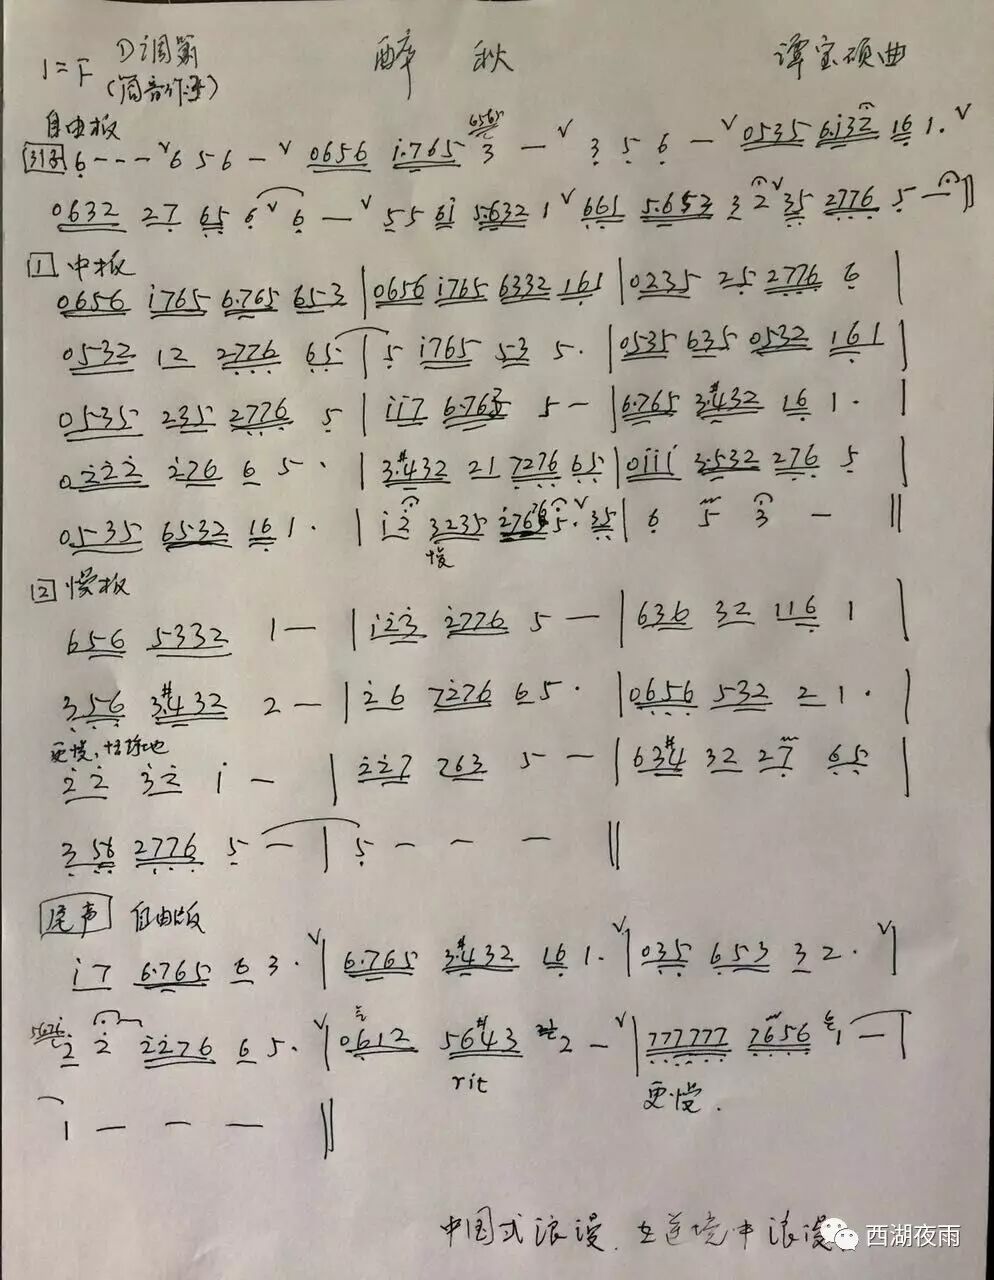 1=F D调箫 醉 秋 谭宝硕曲
(筒音作
自由板
引子 6 - - - ∨ 6 5 6 - ∨ 0656 i·765 6565 3 - ∨ 3 5 6 - ∨ 0535 6i32 16 1· ∨
0632 27 65 6 ∨ 6 - ∨ 55 6i 5·632 1 ∨ 661 5·653 3 2 ∨ 35 2776 5 - ‖
1 中板
0656 i765 6·765 653 | 0656 i765 6332 161 | 0235 25 2776 6 |
0532 12 2776 65 | 5 i765 53 5· | 0535 635 0532 161 |
0535 235 2776 5 | ii7 6·765 5 - | 6·765 3·#432 16 1· |
0222 276 6 5· | 3·#432 21 7276 65 | 0iii 3·532 276 5 |
0535 6532 16 1· | i2 3235 276 5· ∨ 35 | 6 5 3 - ‖
慢
2 慢板
656 5332 1 - | i23 2776 5 - | 636 32 116 1 |
356 3·#432 2 - | 26 7276 65· | 0656 532 2 1· |
更慢,
22 32 i - | 227 263 5 - | 63#4 32 27 65 |
3 56 2776 5 - | 5 - - - ‖
尾声 自由版
i7 6·765 6 3· ∨ | 6·765 3·#432 16 1· ∨ | 035 653 3 2· ∨ |
2 2 2276 6 5· ∨ | 0612 56#43 2 - ∨ | 777777 7656 1 - |
rit 更慢.
1 - - - ‖
中国式浪漫. 在意境中浪漫
西湖夜雨